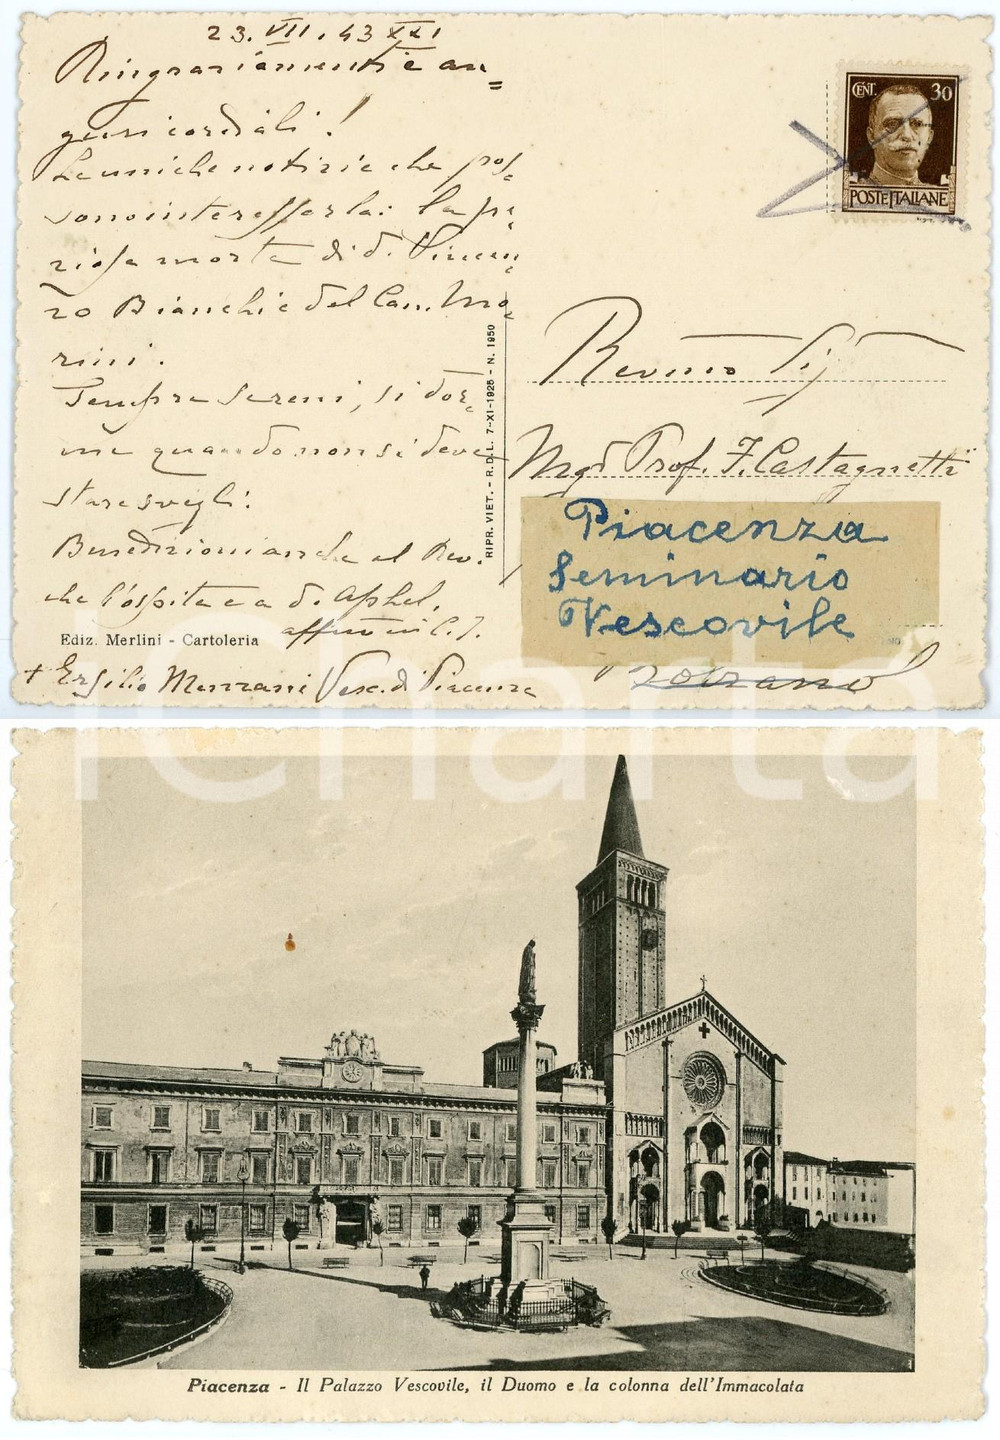 23.VII.43 XXI
Ringraziamenti e au=
guri cordiali!
Le uniche notizie che pos=
sono interessarla: la pe=
riosa morte di d. Vincen=
zo Bianchi e del Can. Mo=
rini.
Sempre sereni, si dor=
me quando non si deve
stare svegli:
Benedizioni anche al Rev.
che l'ospita e a d.
aff.mo in C. J.
+ Ersilio Menzani Vesc. di Piacenza
Ediz. Merlini - Cartoleria
RIPR. VIET. - R.D.L. 7-XI-1925 - N. 1950
CENT. 30
POSTE ITALIANE
Rev.mo Sig
Mgr Prof. F. Castagnetti
Piacenza
Seminario
Vescovile
iCharta
Piacenza - Il Palazzo Vescovile, il Duomo e la colonna dell'Immacolata